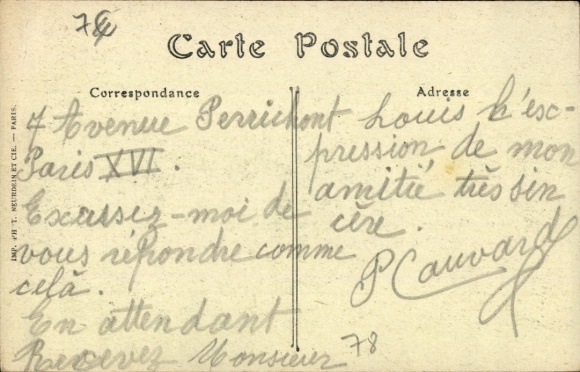 78
Carte Postale
Correspondance
Adresse
IMP. PH. T. NEURDEIN ET CIE. — PARIS.
7 Avenue Perrichont
Paris XVI.
Exassez-moi de
vous répondre comme
celà.
En attendant
Recevez Monsieur
Louis l'ex-
pression de mon
amitié très sin
cère.
P Cauvard
78